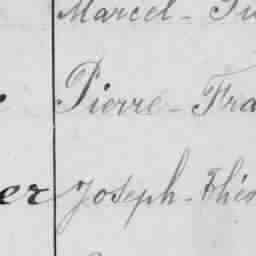 Marcel-
Pierre-Fra
er Joseph-Thé